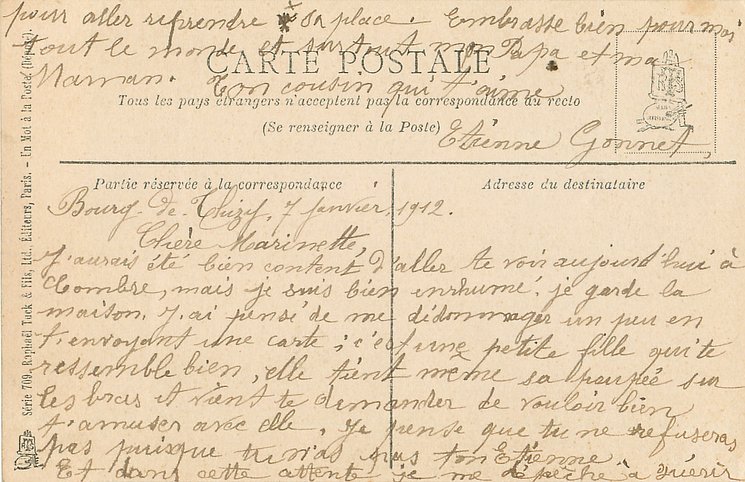 pour aller reprendre sa place. Embrasse bien pour moi
tout le monde et surtout mon Papa et ma
Maman. Ton cousin qui t'aime
Etienne Gonnet,
CARTE POSTALE
Tous les pays étrangers n'acceptent pas la correspondance au recto
(Se renseigner à la Poste)
Partie réservée à la correspondance
Adresse du destinataire
Bourg-de-Thizy, 7 janvier, 1912.
Chère Marinette,
J'aurais été bien content d'aller te voir aujourd'hui à
Combre, mais je suis bien enrhumé, je garde la
maison. J'ai pensé de me dédommager un peu en
t'envoyant une carte; c'est une petite fille qui te
ressemble bien, elle tient même sa poupée sur
les bras et vient te demander de vouloir bien
t'amuser avec elle. Je pense que tu ne refuseras
pas puisque tu n'as pas ton Etienne
Et dans cette attente je me dépêche à guérir
Série 709. Raphaël Tuck & Fils, Ltd., Éditeurs, Paris. - Un Mot à la Poste (Déposé).